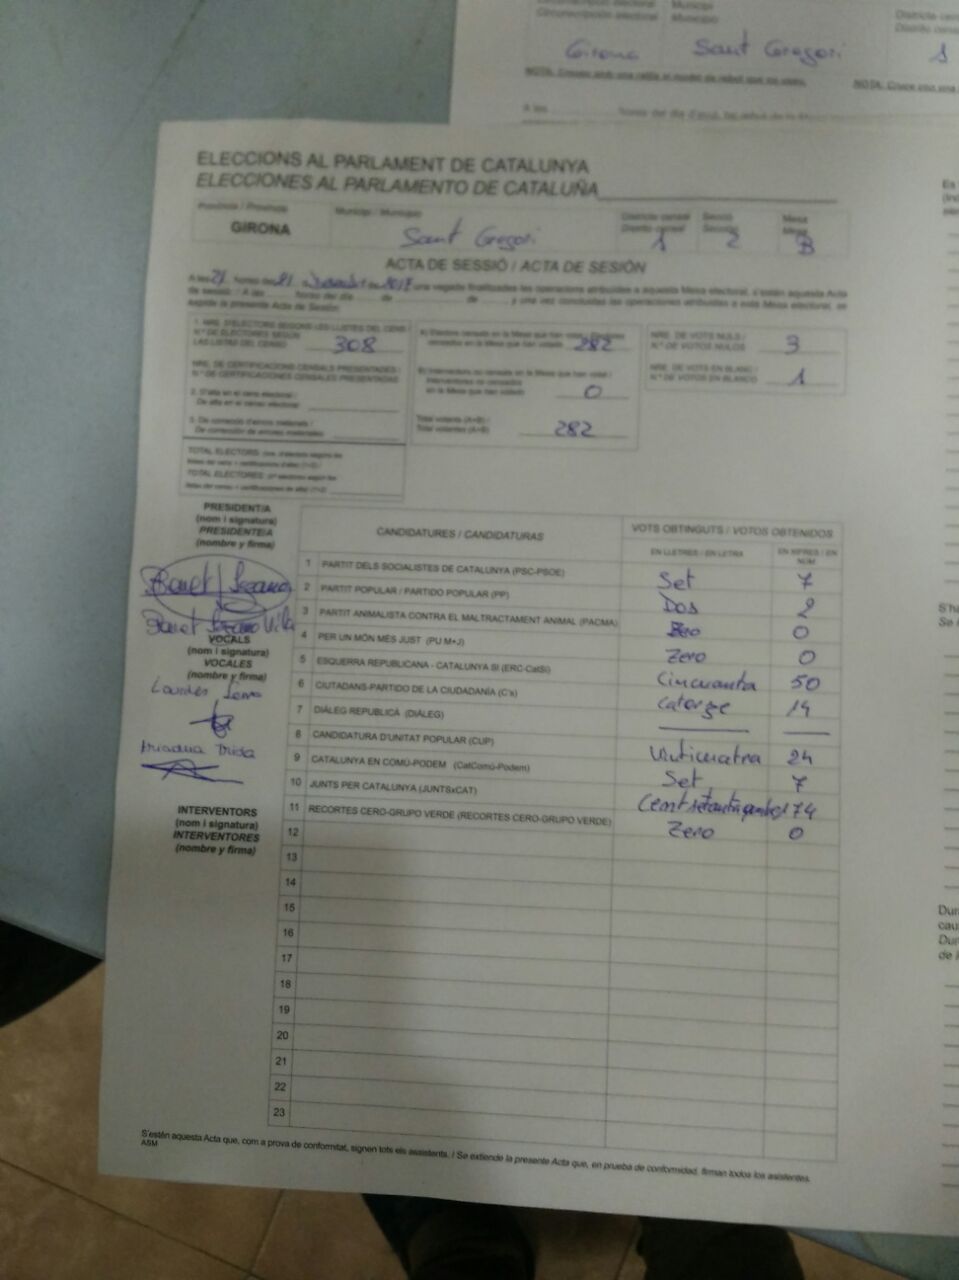 Girona Sant Gregori 1
ELECCIONS AL PARLAMENT DE CATALUNYA
ELECCIONES AL PARLAMENTO DE CATALUÑA
Província / Provincia Municipi / Municipio Districte censal Secció Mesa
Distrito censal Sección Mesa
GIRONA Sant Gregori 1 2 B
ACTA DE SESSIÓ / ACTA DE SESIÓN
A les 21 hores del 21 de de 2017 una vegada finalitzades les operacions atribuïdes a aquesta Mesa electoral, s'estén aquesta Acta
de sessió / A las horas del día de de y una vez concluidas las operaciones atribuidas a esta Mesa electoral, se
expide la presente Acta de Sesión
1. NRE. D'ELECTORS SEGONS LES LLISTES DEL CENS
N.º DE ELECTORES SEGÚN
LAS LISTAS DEL CENSO 308
NRE. DE CERTIFICACIONS CENSALS PRESENTADES /
N.º DE CERTIFICACIONES CENSALES PRESENTADAS
2. D'alta en el cens electoral /
De alta en el censo electoral
3. De correcció d'errors materials /
De corrección de errores materiales
TOTAL ELECTORS
TOTAL ELECTORES
A) Electors censats en la Mesa que han votat / Electores
censados en la Mesa que han votado 282
B) Interventors no censats en la Mesa que han votat /
Interventores no censados
en la Mesa que han votado 0
Total votants (A+B) /
Total votantes (A+B) 282
NRE. DE VOTS NULS /
N.º DE VOTOS NULOS 3
NRE. DE VOTS EN BLANC /
N.º DE VOTOS EN BLANCO 1
PRESIDENT/A
(nom i signatura)
PRESIDENTE/A
(nombre y firma)
VOCALS
(nom i signatura)
VOCALES
(nombre y firma)
Lourdes
INTERVENTORS
(nom i signatura)
INTERVENTORES
(nombre y firma)
CANDIDATURES / CANDIDATURAS VOTS OBTINGUTS / VOTOS OBTENIDOS
EN LLETRES / EN LETRA EN XIFRES / EN NÚM
1 PARTIT DELS SOCIALISTES DE CATALUNYA (PSC-PSOE) Set 7
2 PARTIT POPULAR / PARTIDO POPULAR (PP) Dos 2
3 PARTIT ANIMALISTA CONTRA EL MALTRACTAMENT ANIMAL (PACMA) Zero 0
4 PER UN MÓN MÉS JUST (PUM+J) Zero 0
5 ESQUERRA REPUBLICANA - CATALUNYA SÍ (ERC-CatSí) Cincuanta 50
6 CIUTADANS-PARTIDO DE LA CIUDADANÍA (C's) Catorze 14
7 DIÀLEG REPUBLICÀ (DIÀLEG)
8 CANDIDATURA D'UNITAT POPULAR (CUP) 24
9 CATALUNYA EN COMÚ-PODEM (CatComú-Podem) Set 7
10 JUNTS PER CATALUNYA (JUNTSxCAT) 174
11 RECORTES CERO-GRUPO VERDE (RECORTES CERO-GRUPO VERDE) Zero 0
12
13
14
15
16
17
18
19
20
21
22
23
S'estén aquesta Acta que, com a prova de conformitat, signen tots els assistents. / Se extiende la presente Acta que, en prueba de conformidad, firman todos los asistentes.
ASM